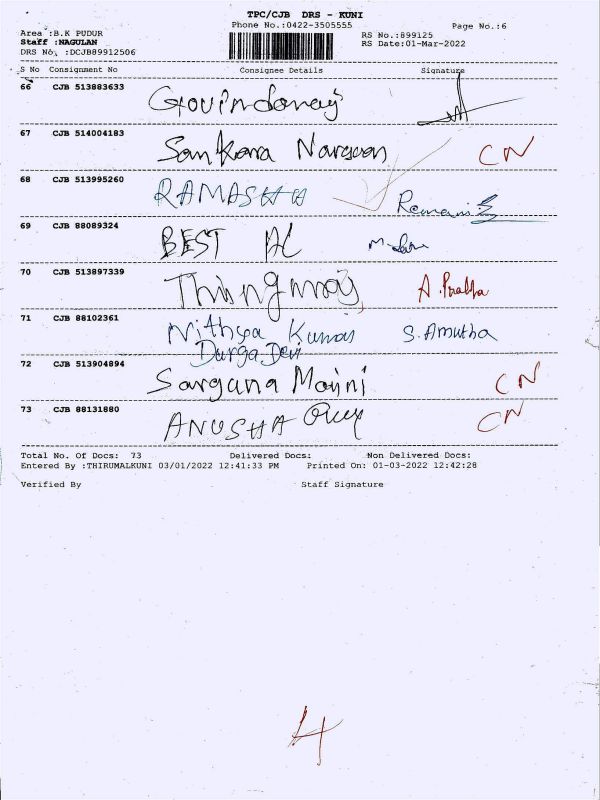 TPC/CJB DRS - KUNI
Phone No.:0422-3505555 Page No.:6
Area :B.K PUDUR RS No.:899125
Staff :NAGULAN RS Date:01-Mar-2022
DRS No. :DCJB89912506
S No Consignment No Consignee Details Signature
66 CJB 513883633 Govindonaj
67 CJB 514004183 Sankara Narayan CN
68 CJB 513995260 RAMASHH Ramani
69 CJB 88089324 BEST AC
70 CJB 513897339 A. Prabha
71 CJB 88102361 Nithya Kumar S. Amutha
Durga Devi
72 CJB 513904894 Sargana Moini CN
73 CJB 88131880 ANUSHA CN
Total No. Of Docs: 73 Delivered Docs: Non Delivered Docs:
Entered By :THIRUMALKUNI 03/01/2022 12:41:33 PM Printed On: 01-03-2022 12:42:28
Verified By Staff Signature
4